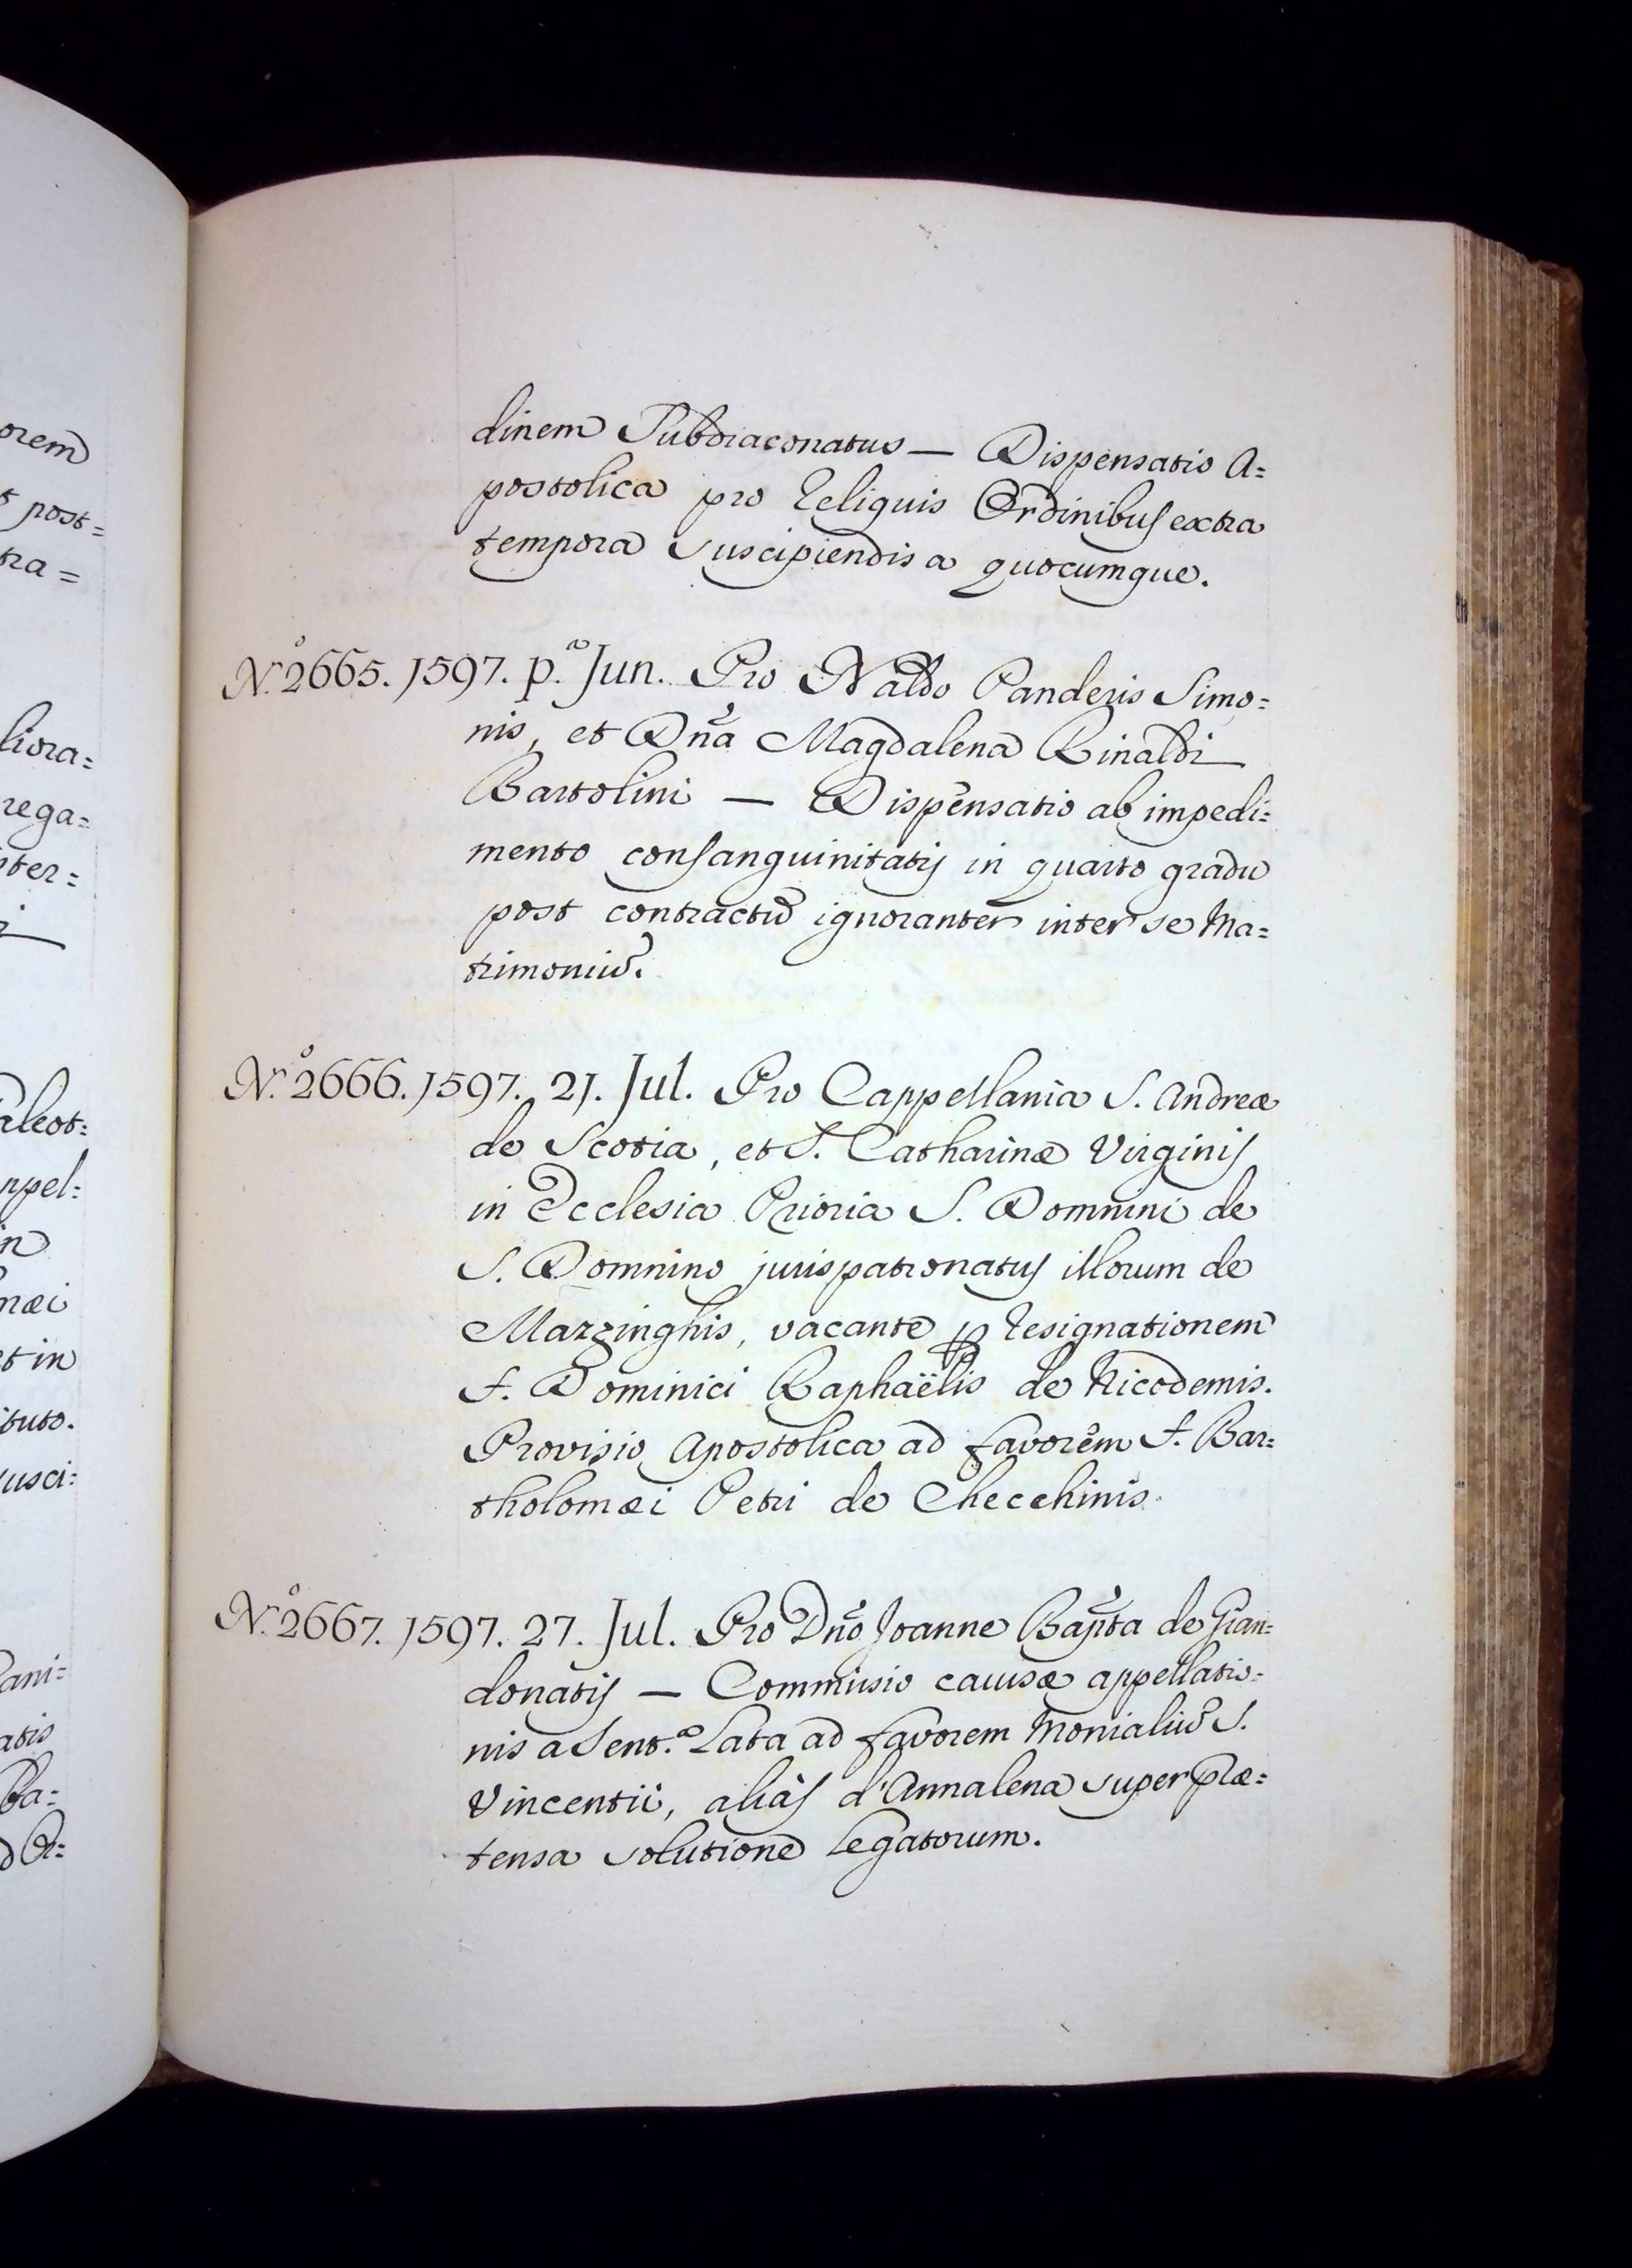 orem
t post=
tra=
liora=
rega=
ster=
aleot=
npel=
in
mæi
et in
ituto.
usci:
ani=
atis
Ba=
dinem Subdiaconatus — Dispensatio A=
postolica pro Reliquis Ordinibus extra
tempora suscipiendis a quocumque.
N.º 2665. 1597. p.ª Jun. Pro Naldo Panderis Simo=
nis, et Dña Magdalena Rinaldi
Bartolini — Dispensatio ab impedi=
mento consanguinitatis in quarto gradu
post contractũ ignoranter inter se Ma=
trimoniũ.
N.º 2666. 1597. 21. Jul. Pro Cappellania S. Andreæ
de Scotia, et S. Catharinæ Virginis
in Ecclesia Prioria S. Domnini de
S. Domnino jurispatronatus illorum de
Mazzinghis, vacante ꝑ Resignationem
f. Dominici Raphaëlis de Nicodemis.
Provisio Apostolica ad favorem f. Bar=
tholomæi Petri de Checchinis.
N.º 2667. 1597. 27. Jul. Pro Dño Joanne Bap̃ta de Gian=
donatis — Commissio causæ appellatio=
nis a Sent.ª Lata ad favorem Monialiũ S.
Vincentii, aliàs d'Annalena super præ=
tensa solutione Legatorum.